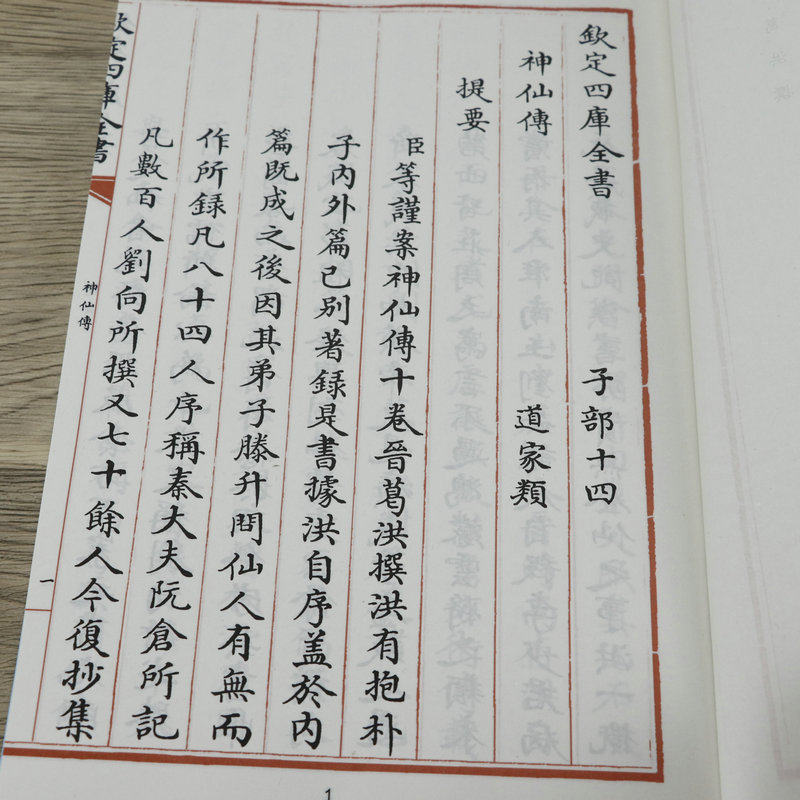 欽定四庫全書 子部十四
神仙傳 道家類
提要
臣等謹案神仙傳十卷晉葛洪撰洪有抱朴
子內外篇已別著録是書據洪自序蓋於內
篇既成之後因其弟子滕升問仙人有無而
作所録凡八十四人序稱秦大夫阮倉所記
凡數百人劉向所撰又七十餘人今復抄集
欽定四庫全書
神仙傳
一
1